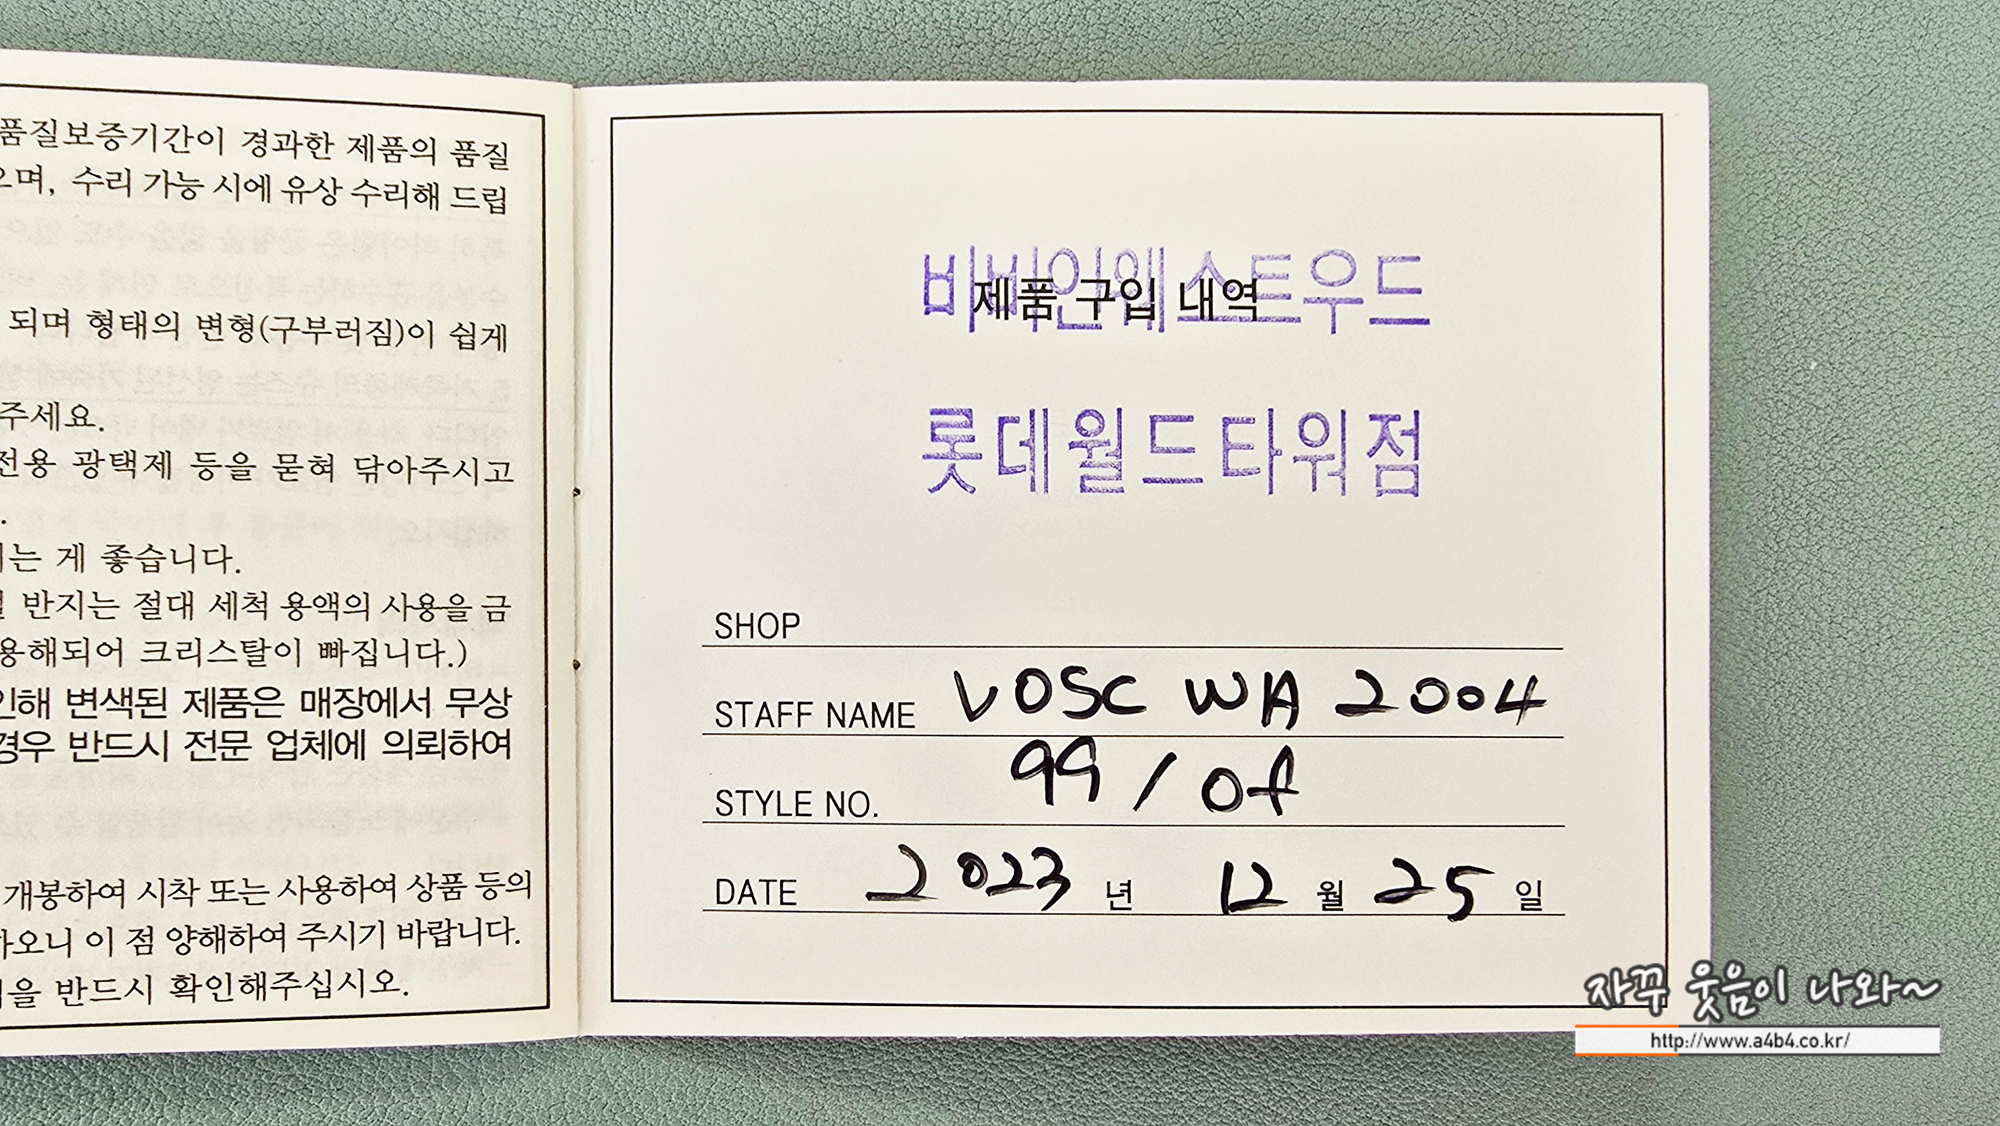 품질보증기간이 경과한 제품의 품질
으며, 수리 가능 시에 유상 수리해 드립
되며 형태의 변형(구부러짐)이 쉽게
주세요.
전용 광택제 등을 묻혀 닦아주시고
는 게 좋습니다.
반지는 절대 세척 용액의 사용을 금
용해되어 크리스탈이 빠집니다.)
인해 변색된 제품은 매장에서 무상
경우 반드시 전문 업체에 의뢰하여
개봉하여 시착 또는 사용하여 상품 등의
하오니 이 점 양해하여 주시기 바랍니다.
을 반드시 확인해주십시오.
비비안웨스트우드
제품 구입 내역
롯데월드타워점
SHOP
STAFF NAME VOSC WA 2004
STYLE NO. 99 / of
DATE 2023 년 12 월 25 일
자꾸 웃음이 나와~
http://www.a4b4.co.kr/